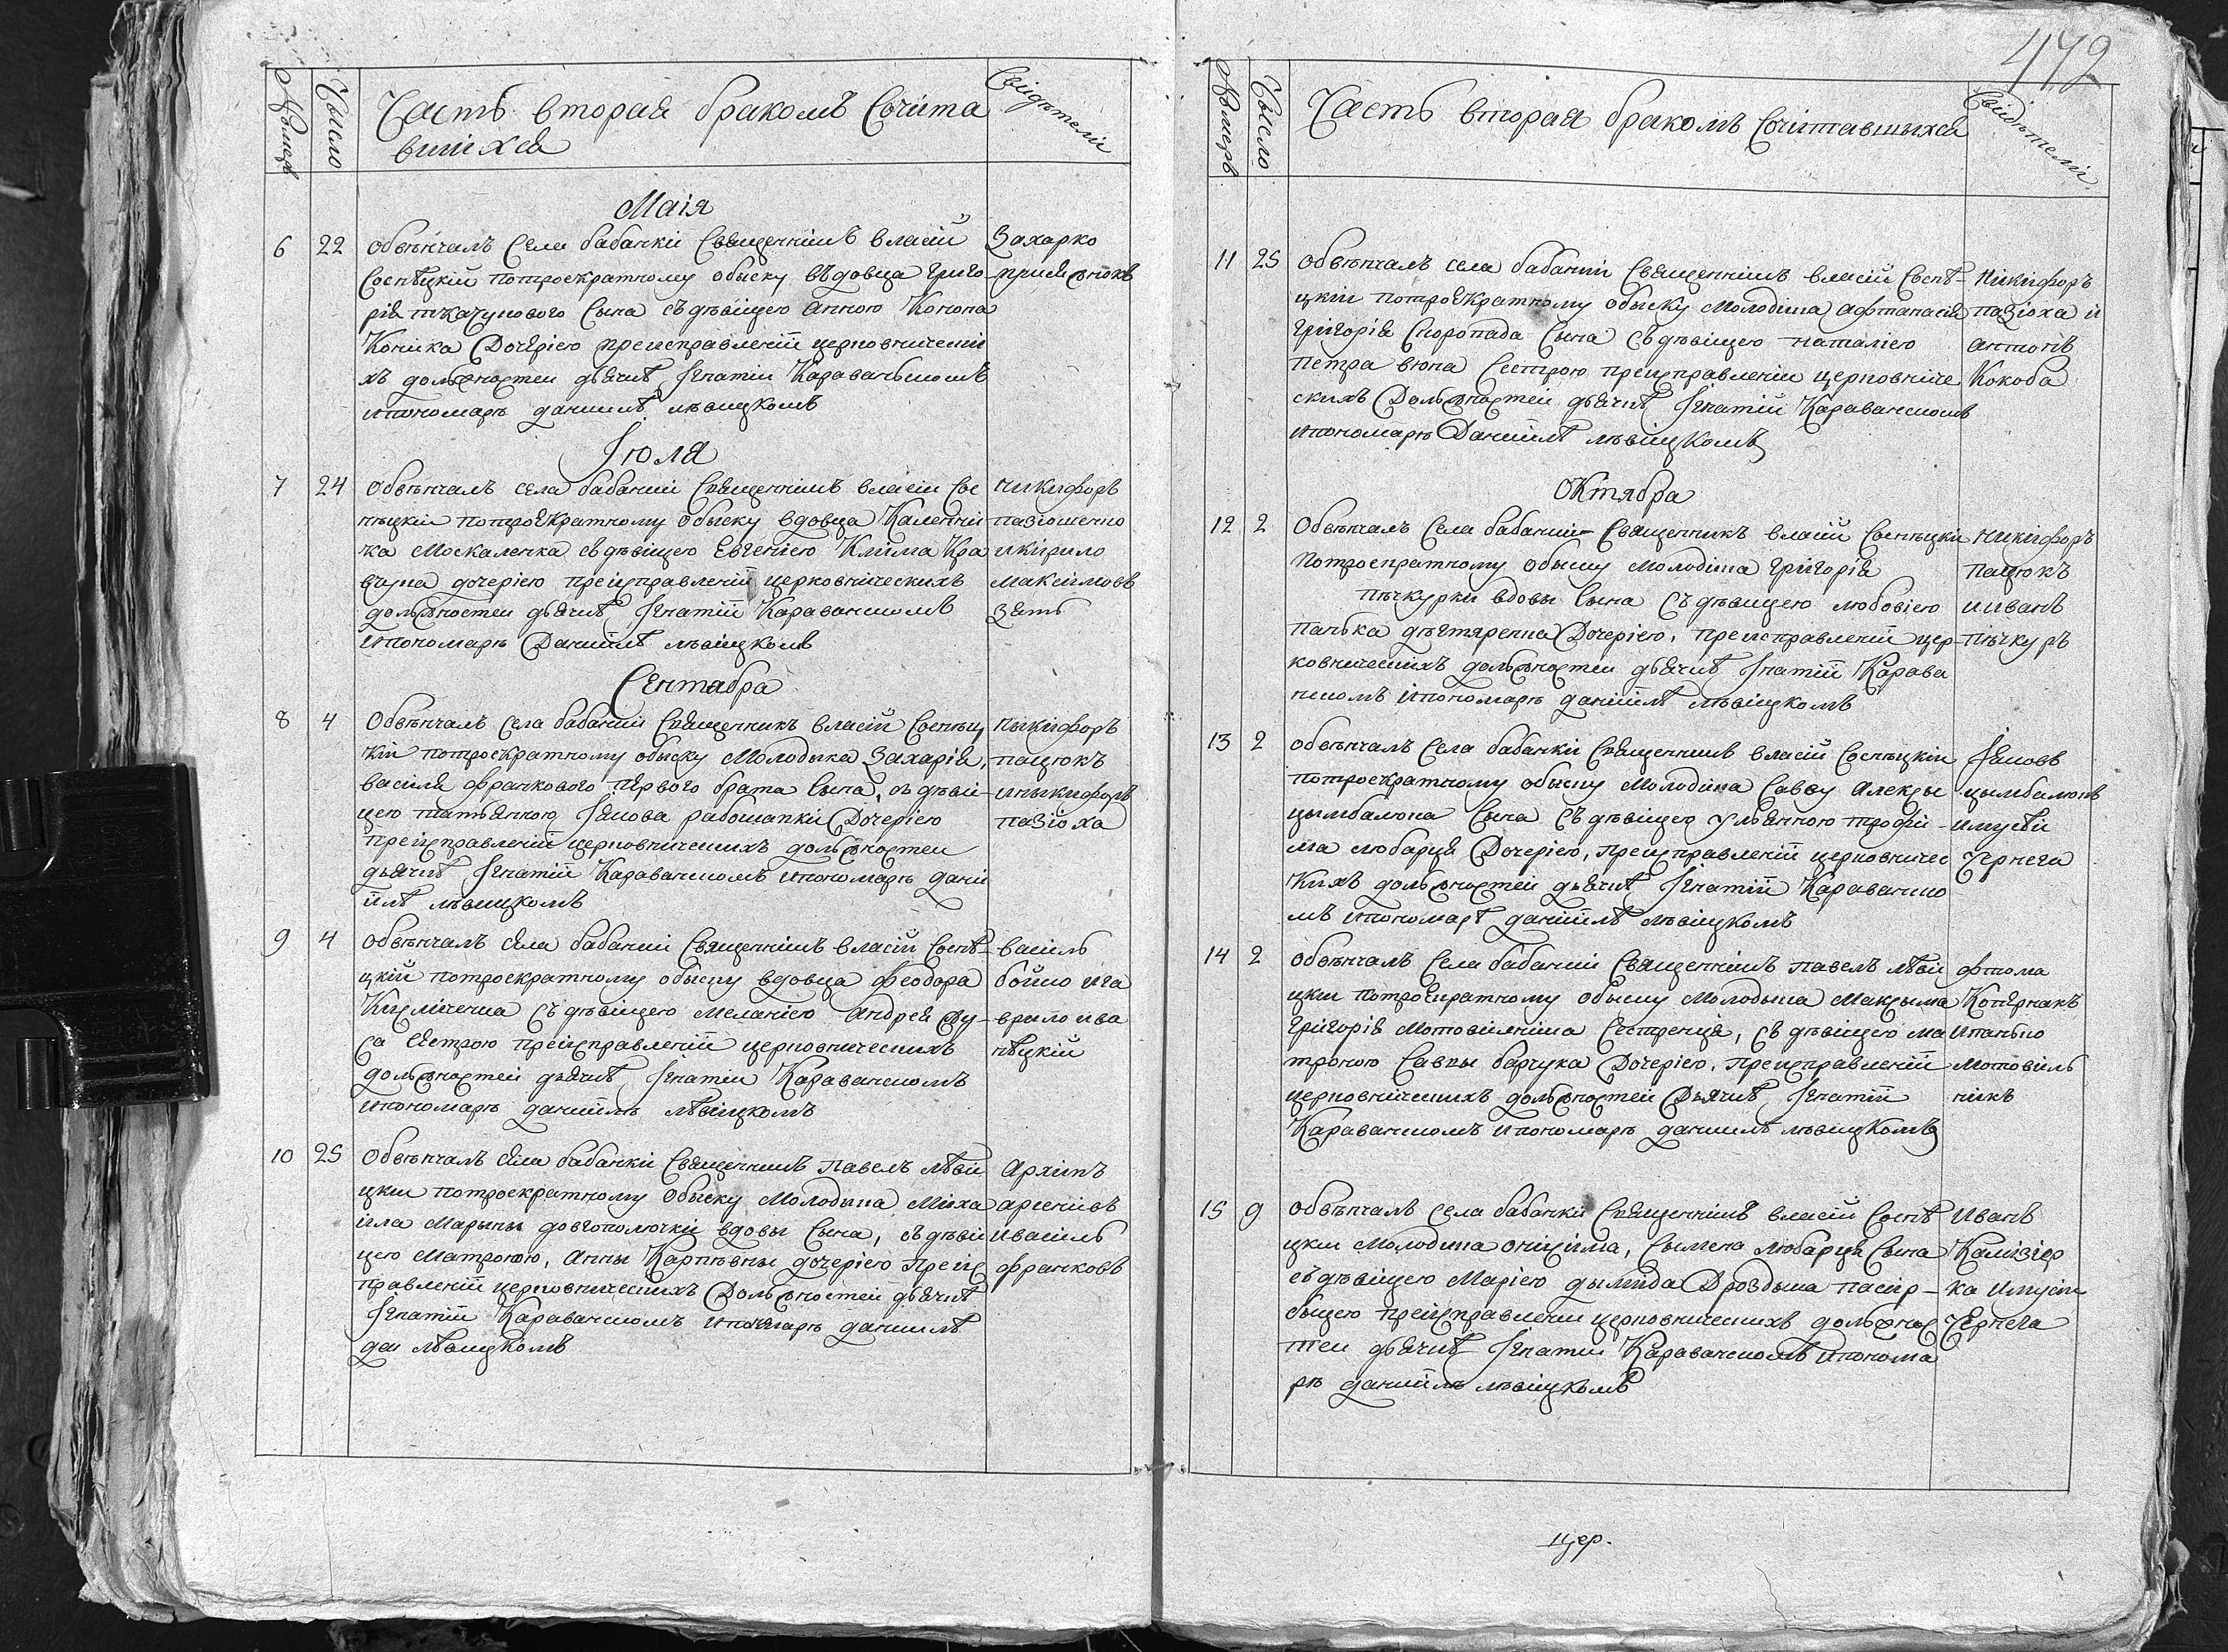 472
Нумеръ
Число
Часть вторая бракомъ Сочита
вшихся
Свидѣтели
Маія
6 22 обвѣнчалъ Села бабанки Священникъ власій
Соснѣцкій потроекратному обыску вѣдовца Григо
рія ткачукового Сына съ дѣвицею анною Конона
Коника Дочерію преисправленій церковническі
хъ должностеи дьячкѣ Игнатіи Караванскомъ
ипономарь даниилѣ лѣвицкомъ
Захарко
Іюля
7 24 обвѣнчалъ села бабанки Священникъ власіи Сос
нѣцкіи потроекратному обыску вдовца Каленни
ка Москаленка съ дѣвицею Евгеніею Клима Кра
вчука дочерію преисправленій церковническихъ
должностеи дьячкѣ Игнатіи Караванскомъ
ипономарь Даниилѣ лѣвицкомъ
никифоръ
пазюшенко
икирило
Максимовъ
зять
Сентября
8 4 Обвѣнчалъ села бабанки Священникъ власій Соснѣц
кіи потроекратному обыску Молодыка Захарія,
василя франкового первого брата Сына, съ дѣви
цею татьянною Якова Дочерію
преисправленій церковническихъ должностеи
дьячкѣ Игнатіи Караванскомъ ипономарь дани
илѣ лѣвицкомъ
ныкифоръ
пацюкъ
иныкифоръ
пазюха
9 4 обвѣнчалъ села бабанки Священникъ власій Соснѣ
цкій потроекратному обыску вдовца феодора
съ дѣвицею Меланіею Андрея
Сестрою преисправленій церковническихъ
должностей дьячкѣ Игнатіи Караванскомъ
ипономарь данииль лѣвицкомъ
василь
бойко ига
врило ива
нѣцкій
10 25 Обвѣнчалъ села бабанки Священникъ павелъ лѣви
цкіи потроекратному обыску Молодыка Миха
ила Марыны довгополючки вдовы Сына, съ дѣви
цею Матроною, Анны Карпѣвны дочерію преис
правленій церковническихъ Должностей дьячкѣ
Игнатіи Караванскомъ ипономарь даниилѣ
лѣвицкомъ
Архипъ
арсенювъ
ивасиль
франковъ
Нумеръ
Число
Часть вторая бракомъ Сочитавшихся
Свидѣтели
11 25 обвѣнчалъ села бабанки Священникъ власій Соснѣ
цкіи потроекратному обыску Молодика афанасія
Григорія Скоропада Сына съ дѣвицею наталіею
петра вюна Сестрою преисправленіи церковниче
скихъ Должностеи дьячкѣ Игнатіи Караванскомъ
ипономарь Даниилѣ лѣвицкомъ
никифоръ
пазюха и
антонъ
Кокоба
Октября
12 2 Обвѣнчалъ Села бабанки Священникъ власій Соснѣцкіи
потроекратному обыску Молодика Григорія
пѣчкурки вдовы Сына съ дѣвицею любовіею
панька дѣгтяренка Дочерію, преисправленій цер
ковническихъ должностеи дьячкѣ Игнатіи Карава
нскомъ ипономарь даниилѣ лѣвицкомъ
никифоръ
пацюкъ
ииванъ
пѣчкуръ
13 2 обвѣнчалъ Села бабанки Священникъ власій Соснѣцкіи
потроекратному обыску Молодика Савву
цымбалюка Сына съ дѣвицею ульянною трофи
ма любарця Дочерію, преисправленій церковничес
кихъ должностеи дьячкѣ Игнатіи Караванско
мъ ипономарь даниилѣ лѣвицкомъ
Яковъ
цымбалюкъ
имусіи
Чернега
14 2 обвѣнчалъ Села бабанки Священникъ павелъ лѣви
цкіи потроекратному обыску Молодыка Максыма
Григорія Мотовилника Сестренця, съ дѣвицею ма
троною Саввы барчука Дочерію, преисправленій
церковническихъ должностеи Дьячкѣ Игнатіи
Караванскомъ ипономарь даниилѣ лѣвицкомъ
фтома
Копернакъ
ипанько
мотовиль
никъ
15 9 обвѣнчалъ села бабанки Священникъ власій Соснѣ
цкіи Молодика онисима, Сымена любарця Сына
съ дѣвицею Маріею Дроздыка пасир
бицею преисправленіи церковническихъ должнос
теи дьячкѣ Игнатіи Караванскомъ ипонома
рь данииль лѣвицкомъ
Иванъ
имусіи
Чернега
цер.